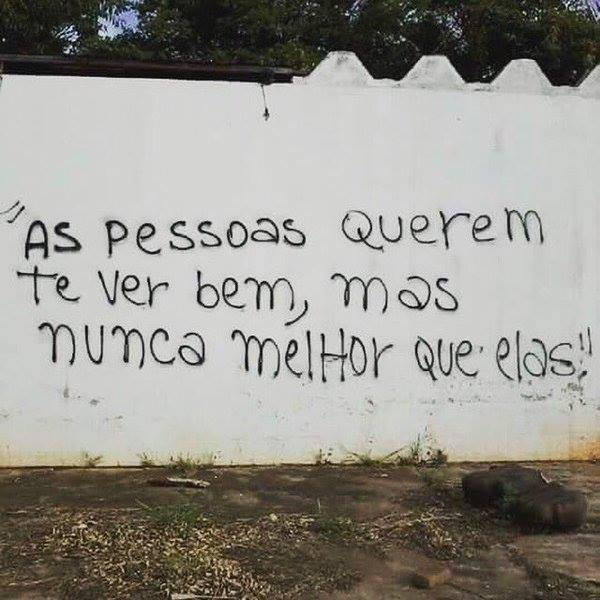 "As pessoas querem
te ver bem, mas
nunca melhor que elas!"